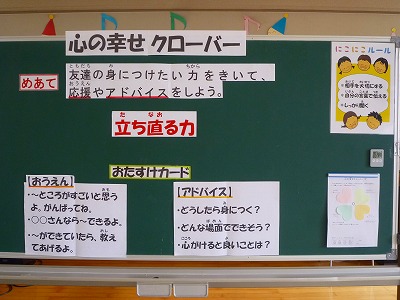 心の幸せ クローバー
めあて
友達の身につけたい力をきいて、
応援やアドバイスをしよう。
立ち直る力
おたすけカード
【おうえん】
・～ところがすごいと思う
よ。がんばってね。
・○○さんなら～できるよ。
・～ができていたら、教え
てあげるよ。
【アドバイス】
・どうしたら身につく？
・どんな場面でできそう？
・心がけると良いことは？
にこにこルール
相手を大切にする
自分の言葉で伝える
しっかり聞く